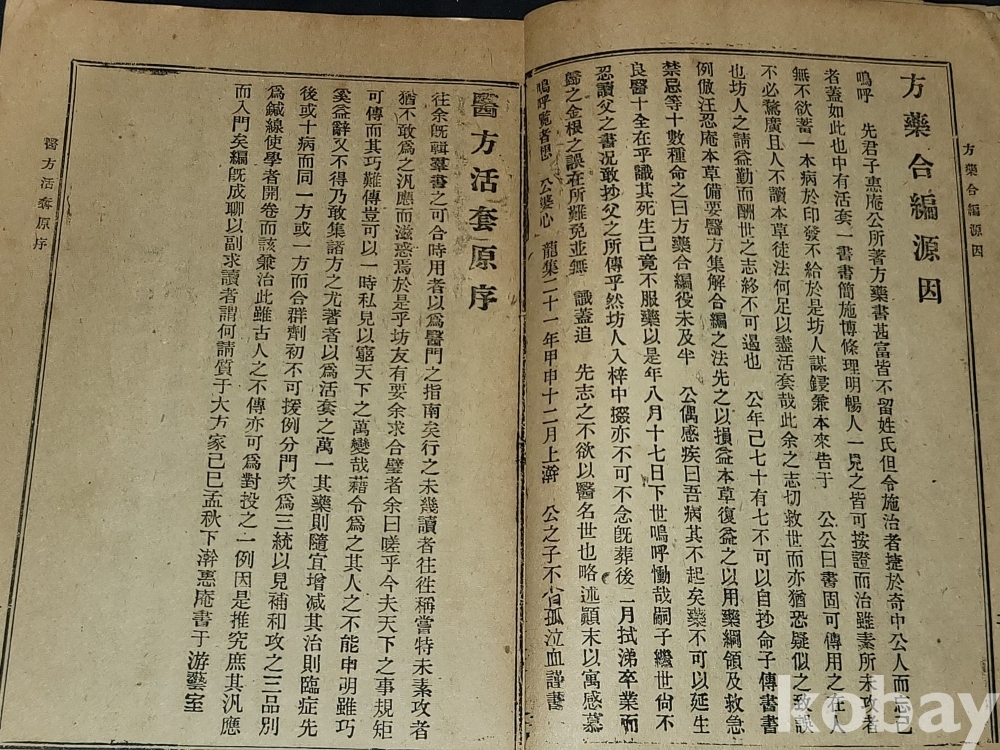 方藥合編源因
方藥合編源因
嗚呼 先君子惠庵公所著方藥書甚富皆不留姓氏但令施治者捷於奇中公人而忘己
者蓋如此也中有活套一書書簡施博條理明暢人一見之皆可按證而治雖素所未攻者
無不欲蓄一本病於印發不給於是坊人謀鋟兼本來告于 公公曰書固可傳用之在人
不必騖廣且人不讀本草徒法何足以盡活套哉此余之志切救世而亦猶恐疑似之致誤
也坊人之請益勤而酬世之志終不可遏也 公年已七十有七不可以自抄命子傳書書
例倣汪忍庵本草備要醫方集解合編之法先之以損益本草復益之以用藥綱領及救急
禁忌等十數種命之曰方藥合編役未及半 公偶感疾曰吾病其不起矣藥不可以延生
良醫十全在乎識其死生己竟不服藥以是年八月十七日下世嗚呼慟哉嗣子繼世尙不
忍讀父之書况敢抄父之所傳乎然坊人入梓中掇亦不可不念旣葬後二月拭涕卒業而
歸之金根之誤在所難免並無 識蓋追 先志之不欲以醫名世也略述顚末以寓感慕
嗚呼覽者思 公婆心 龍集二十一年甲申十二月上澣 公之子不肖孤泣血謹書
醫方活套原序
往余旣輯羣書之可合時用者以爲醫門之指南矣行之未幾讀者往往稱嘗特未素攻者
猶不敢爲之汎應而滋惑焉於是乎坊友有要余求合璧者余曰嗟乎今夫天下之事規矩
可傳而其巧難傳豈可以一時私見以窮天下之萬變哉藉令爲之其人之不能申明雖巧
奚益辭又不得乃敢集諸方之尤著者以爲活套之萬一其藥則隨宜增减其治則臨症先
後或十病而同一方或一方而合群劑初不可援例分門次爲三統以見補和攻之三品別
爲鍼線使學者開卷而該兼治此雖古人之不傳亦可爲對投之一例因是推究庶其汎應
而入門矣編旣成聊以副求讀者謂何請質于大方家己巳孟秋下澣惠庵書于游藝室
醫方活套原序
kobay